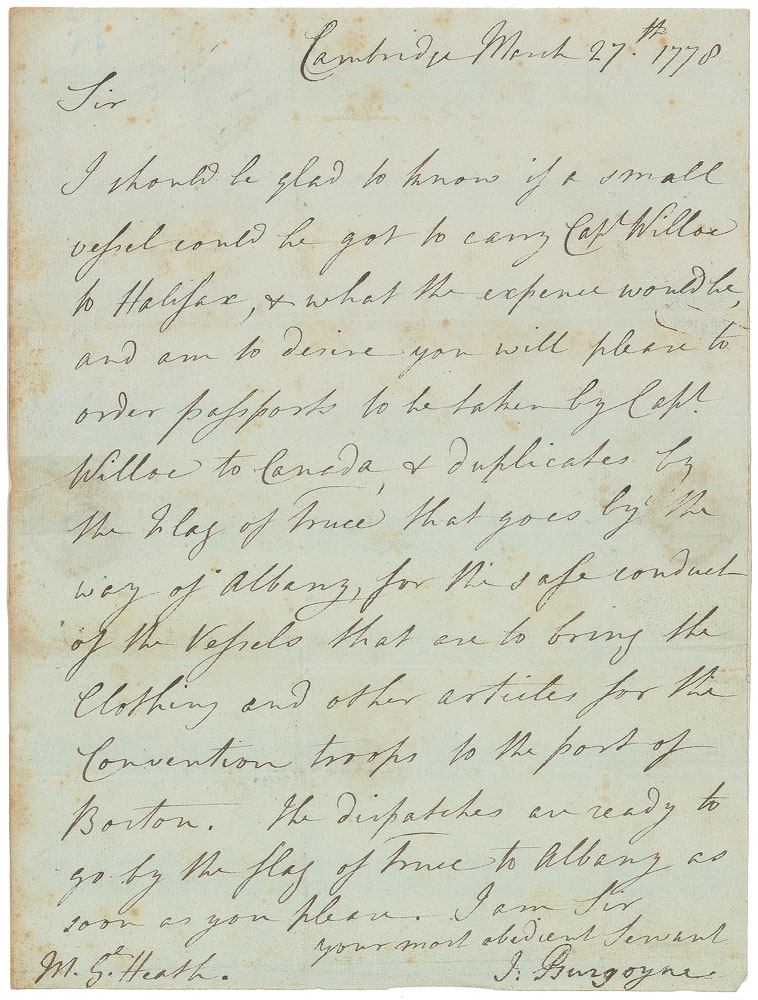 Cambridge March 27.th 1778
Sir
I should be glad to know if a small
vessel could be got to carry Capt. Willoe
to Halifax, & what the expence would be,
and am to desire you will please to
order passports to be taken by Capt.
Willoe to Canada, & duplicates by
the Flag of Truce that goes by the
way of Albany, for the safe conduct
of the Vessels that are to bring the
Clothing and other articles for the
Convention troops to the port of
Boston. The dispatches are ready to
go by the flag of Truce to Albany as
soon as you please. I am Sir
your most obedient Servant
M. Gl. Heath.
J. Burgoyne.